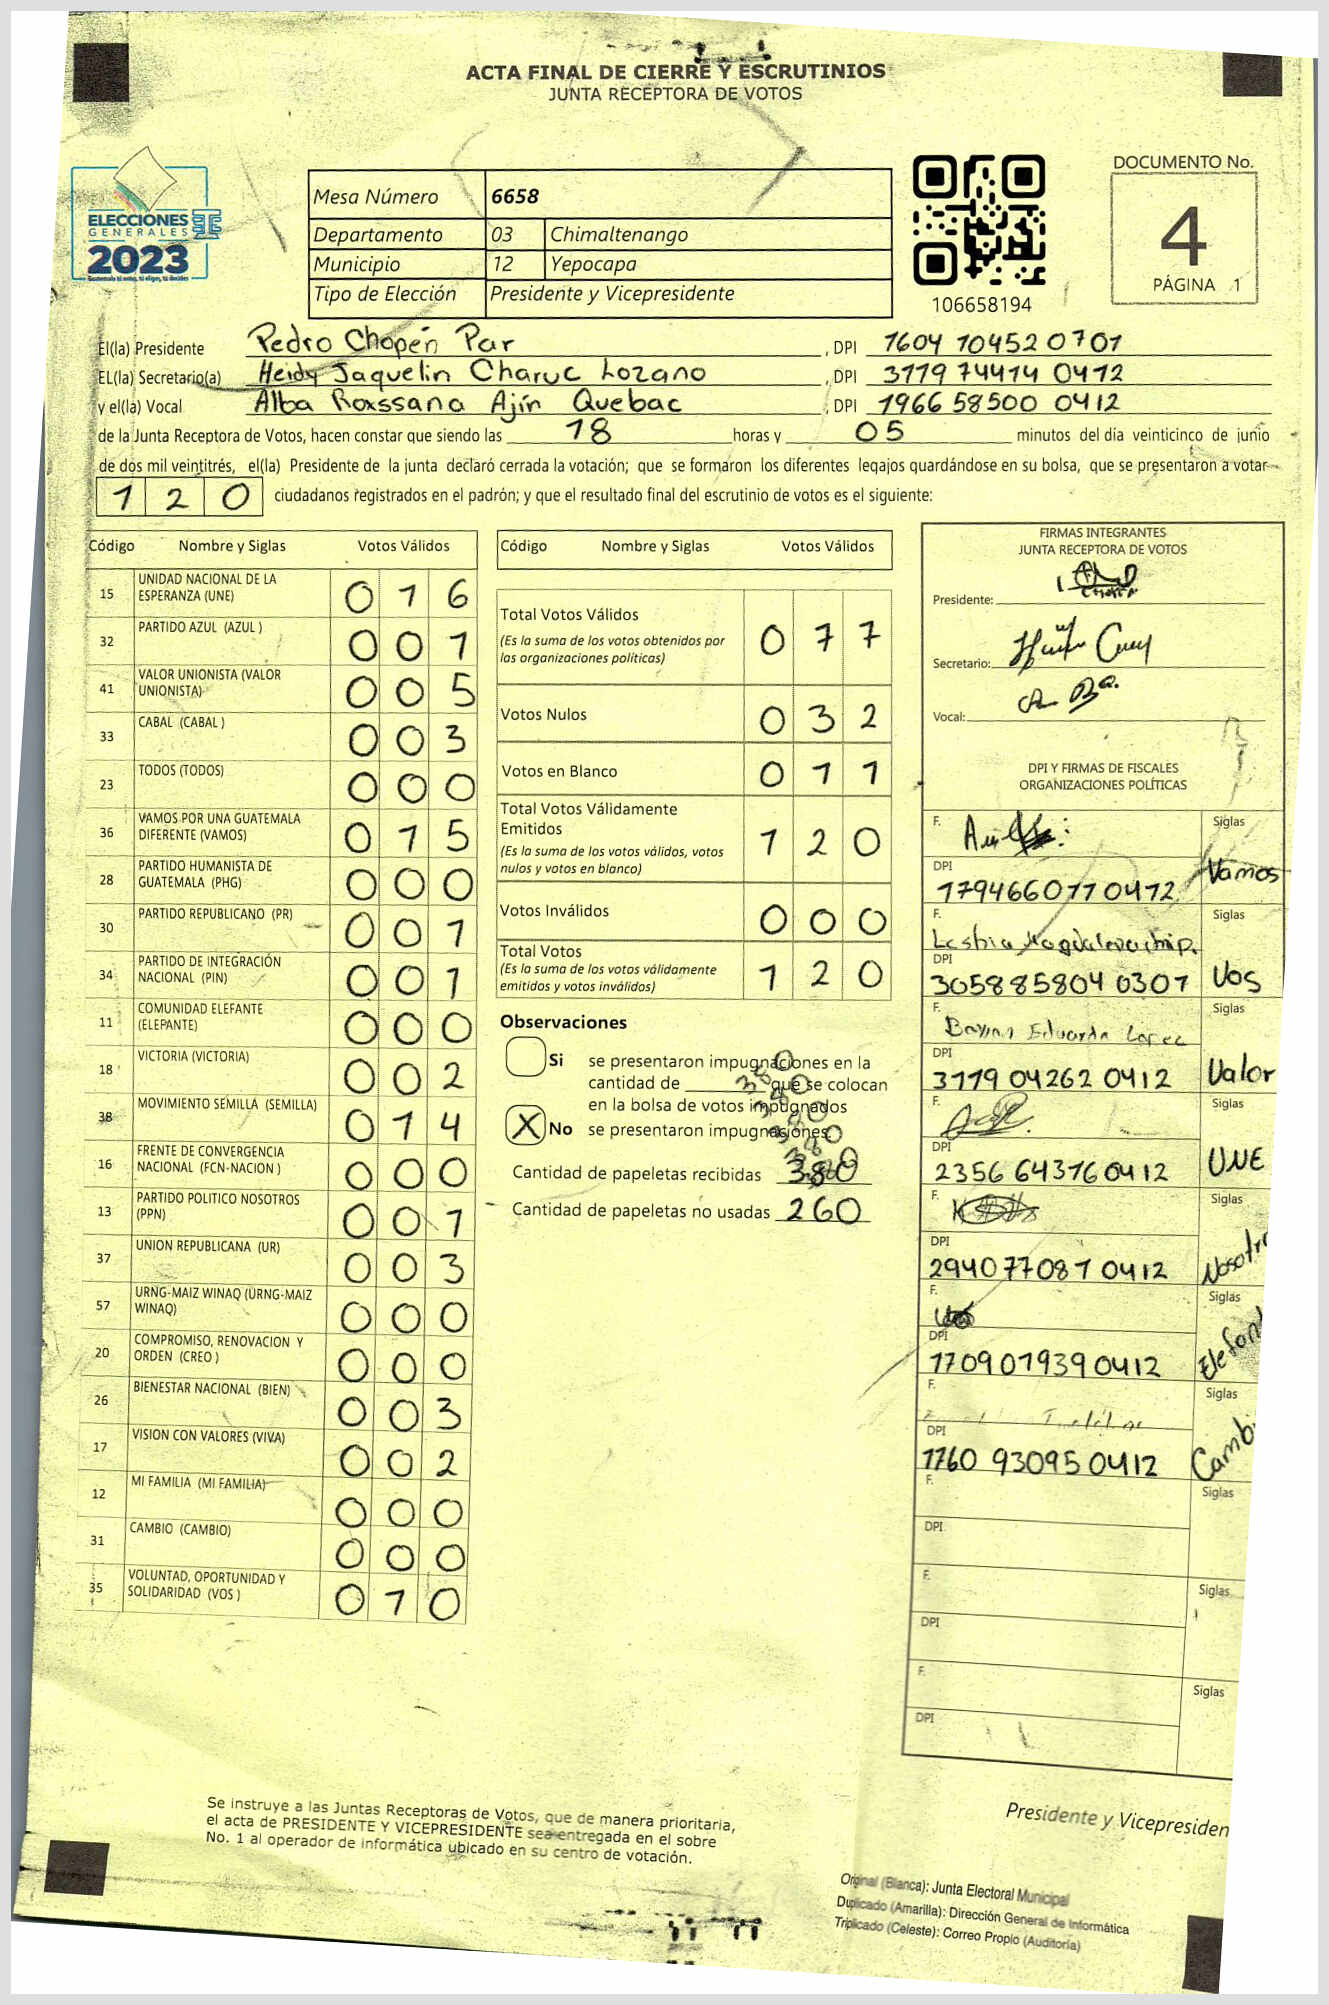 ACTA FINAL DE CIERRE Y ESCRUTINIOS
JUNTA RECEPTORA DE VOTOS
ELECCIONES
GENERALES
2023
Mesa Número 6658
Departamento 03 Chimaltenango
Municipio 12 Yepocapa
Tipo de Elección Presidente y Vicepresidente
106658194
DOCUMENTO No.
4
PÁGINA 1
El(la) Presidente Pedro Chopén Par , DPI 1604 10452 0701
EL(la) Secretario(a) Heidy Jaquelin Charuc Lozano , DPI 3119 74414 0412
y el(la) Vocal Alba Roxssana Ajín Quebac , DPI 1966 58500 0412
de la Junta Receptora de Votos, hacen constar que siendo las 18 horas y 05 minutos del día veinticinco de junio
de dos mil veintitrés, el(la) Presidente de la junta declaró cerrada la votación; que se formaron los diferentes legajos guardándose en su bolsa, que se presentaron a votar
120 ciudadanos registrados en el padrón; y que el resultado final del escrutinio de votos es el siguiente:
Código Nombre y Siglas Votos Válidos
15 UNIDAD NACIONAL DE LA
ESPERANZA (UNE) 016
32 PARTIDO AZUL (AZUL ) 001
41 VALOR UNIONISTA (VALOR
UNIONISTA) 005
33 CABAL (CABAL ) 003
23 TODOS (TODOS) 000
36 VAMOS POR UNA GUATEMALA
DIFERENTE (VAMOS) 015
28 PARTIDO HUMANISTA DE
GUATEMALA (PHG) 000
30 PARTIDO REPUBLICANO (PR) 001
34 PARTIDO DE INTEGRACIÓN
NACIONAL (PIN) 001
11 COMUNIDAD ELEFANTE
(ELEPANTE) 000
18 VICTORIA (VICTORIA) 002
38 MOVIMIENTO SEMILLA (SEMILLA) 014
16 FRENTE DE CONVERGENCIA
NACIONAL (FCN-NACION ) 000
13 PARTIDO POLITICO NOSOTROS
(PPN) 001
37 UNION REPUBLICANA (UR) 003
57 URNG-MAIZ WINAQ (URNG-MAIZ
WINAQ) 000
20 COMPROMISO, RENOVACION Y
ORDEN (CREO ) 000
26 BIENESTAR NACIONAL (BIEN) 003
17 VISION CON VALORES (VIVA) 002
12 MI FAMILIA (MI FAMILIA) 000
31 CAMBIO (CAMBIO) 000
35 VOLUNTAD, OPORTUNIDAD Y
SOLIDARIDAD (VOS ) 010
Código Nombre y Siglas Votos Válidos
Total Votos Válidos
(Es la suma de los votos obtenidos por
las organizaciones políticas) 077
Votos Nulos 032
Votos en Blanco 011
Total Votos Válidamente
Emitidos
(Es la suma de los votos válidos, votos
nulos y votos en blanco) 120
Votos Inválidos 000
Total Votos
(Es la suma de los votos válidamente
emitidos y votos inválidos) 120
Observaciones
Si se presentaron impugnaciones en la
cantidad de que se colocan
en la bolsa de votos impugnados
X No se presentaron impugnaciones
Cantidad de papeletas recibidas 380
Cantidad de papeletas no usadas 260
FIRMAS INTEGRANTES
JUNTA RECEPTORA DE VOTOS
Presidente:
Secretario:
Vocal:
DPI Y FIRMAS DE FISCALES
ORGANIZACIONES POLÍTICAS
F. Siglas
DPI Vamos
1794660110412
F. Siglas
DPI
305885804 0307 Vos
F. Bayron Eduardo Lopez Siglas
DPI
3119 04262 0412 Valor
F. Siglas
DPI
2356 64376 0412 UNE
F. Siglas
DPI
2940 77087 0412 Nosotr
F. Siglas
DPI
1709 01939 0412 Elefant
F. Siglas
DPI
1760 93095 0412 Cambi
F. Siglas
DPI
F. Siglas
DPI
F. Siglas
DPI
Se instruye a las Juntas Receptoras de Votos, que de manera prioritaria,
el acta de PRESIDENTE Y VICEPRESIDENTE sea entregada en el sobre
No. 1 al operador de informática ubicado en su centro de votación.
Presidente y Vicepresiden
Original (Blanca): Junta Electoral Municipal
Duplicado (Amarilla): Dirección General de Informática
Triplicado (Celeste): Correo Propio (Auditoría)